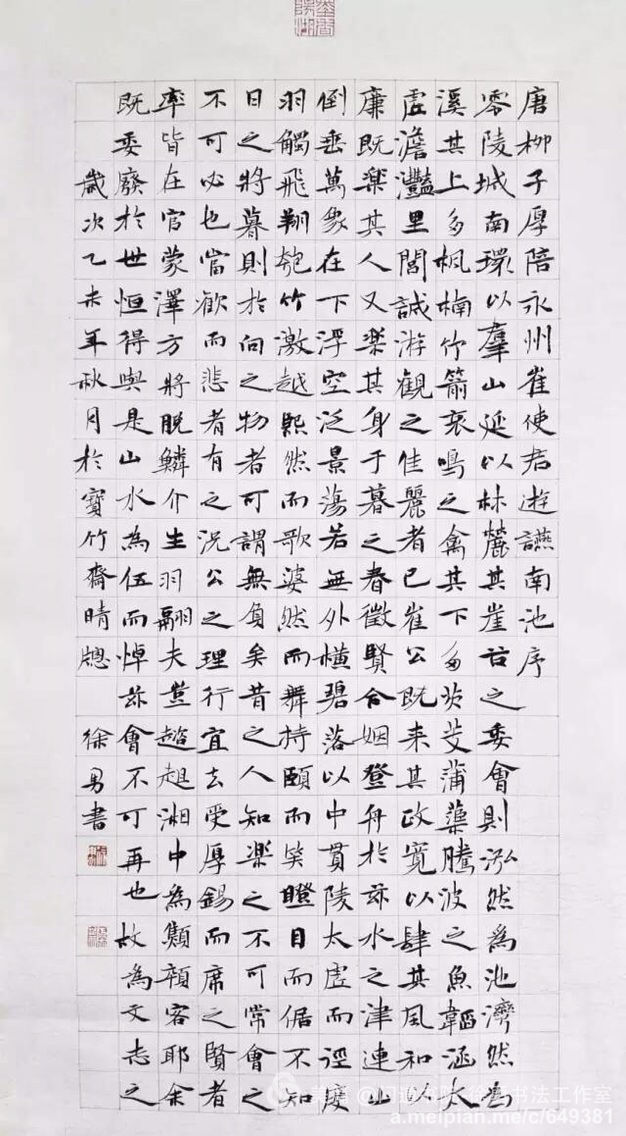 唐柳子厚陪永州崔使君遊讌南池序
零陵城南環以羣山延以林麓其崖谷之委會則泓然為池濟然為
溪其上多楓楠竹箭哀鳴之禽其下多茨芰蒲蕖騰波之魚韜涵太
虛澹灩里閭誠游觀之佳麗者已崔公既來其政寬以肆其風和以
廉既樂其人又樂其身于暮之春徵賢合姻登舟於茲水之津連山
倒垂萬象在下浮空泛景蕩若無外橫碧落以中貫陵太虛而徑度
羽觴飛翔匏竹激越熙然而歌婆然而舞持頤而笑瞪目而倨不知
日之將暮則於向之物者可謂無負矣昔之人知樂之不可常會之
不可必也當歡而悲者有之況公之理行宜去受厚錫而席之賢者
率皆在官蒙澤方將脫鱗介生羽翮夫豈趑趄湘中為顦顇客耶余
既委廢於世恒得與是山水為伍而悼茲會不可再也故為文志之
歲次乙未年秋月於寶竹齋晴窗 徐男書
书法工作室
a.meipian.me/c/649381